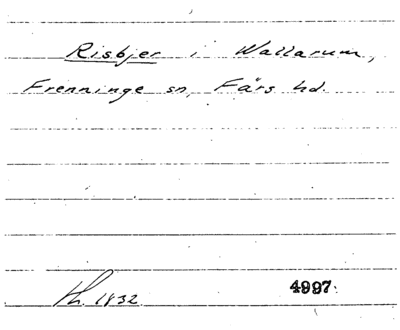 Risbjer i Wallarum,
Frenninge sn, Färs hd.
1832. 4997.